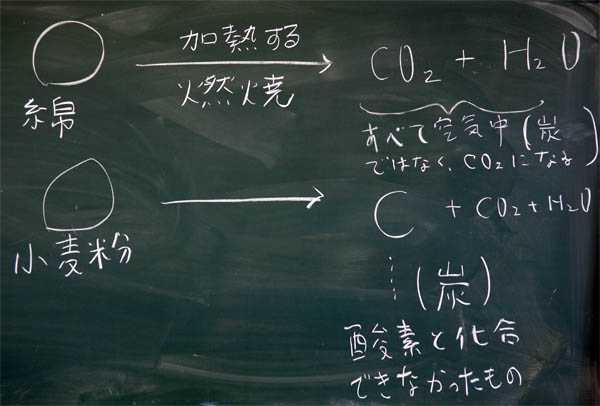 加熱する
綿 → CO₂ + H₂O
燃焼
すべて空気中(炭
ではなく、CO₂になる)
小麦粉 → C + CO₂ + H₂O
(炭)
酸素と化合
できなかったもの